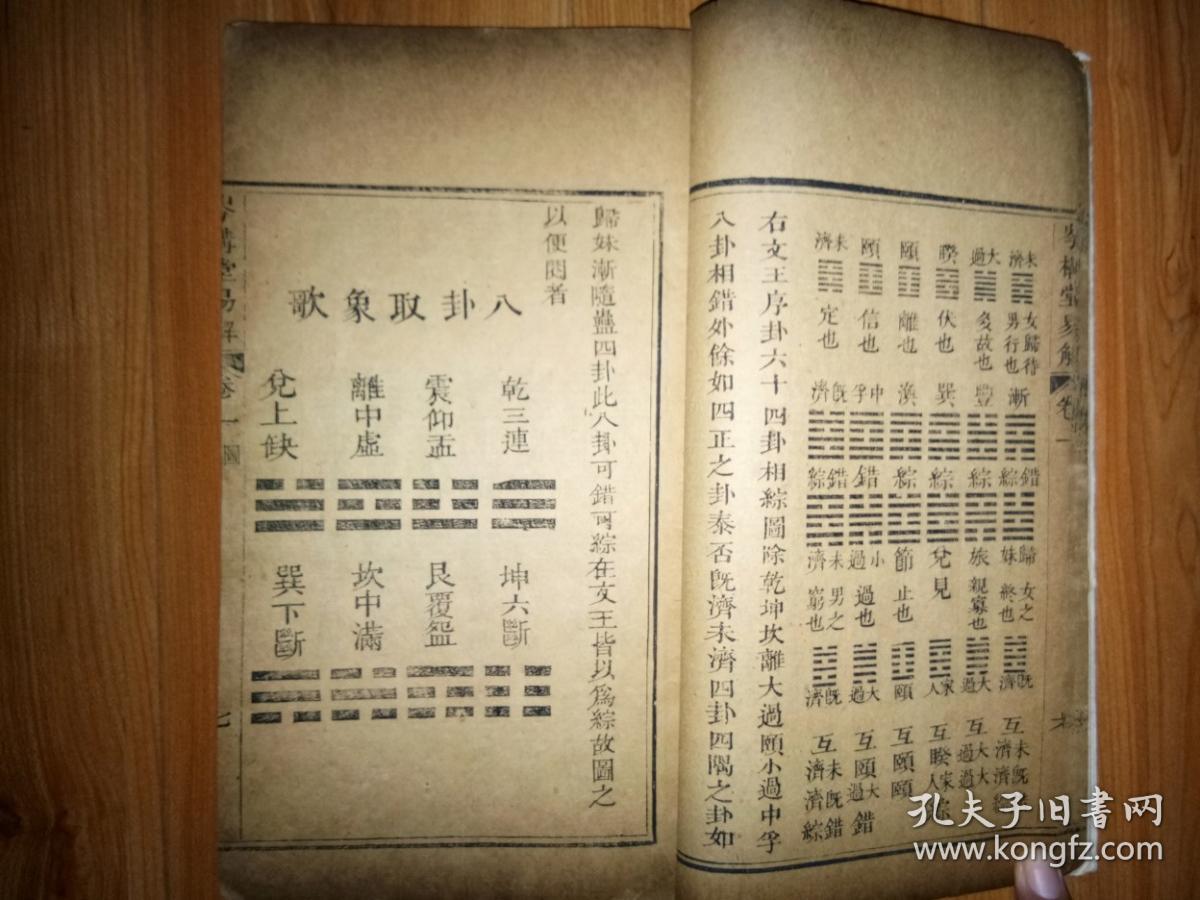 未濟
女歸待男行也
漸
錯綜
歸妹
女之終也
既濟
互未濟既濟綜
大過
多故也
豐
綜
旅
親寡也
大過
互大過大過
睽
伏也
巽
綜
兌
見
家人
互睽家人綜
頤
離也
渙
綜
節
止也
頤
互頤頤
頤
信也
中孚
錯
小過
過也
大過
互頤大過錯
未濟
定也
既濟
錯綜
未濟
男之窮也
既濟
互未濟既濟錯綜
右文王序卦六十四卦相綜圖除乾坤坎離大過頤小過中孚
八卦相錯外餘如四正之卦泰否既濟未濟四卦四隅之卦如
歸妹漸隨蠱四卦此八卦可錯可綜在文王皆以為綜故圖之
以便閱者
八卦取象歌
乾三連
坤六斷
震仰盂
艮覆盌
離中虛
坎中滿
兌上缺
巽下斷
堂易解
卷一
圖
七
孔夫子旧书网
www.kongfz.com